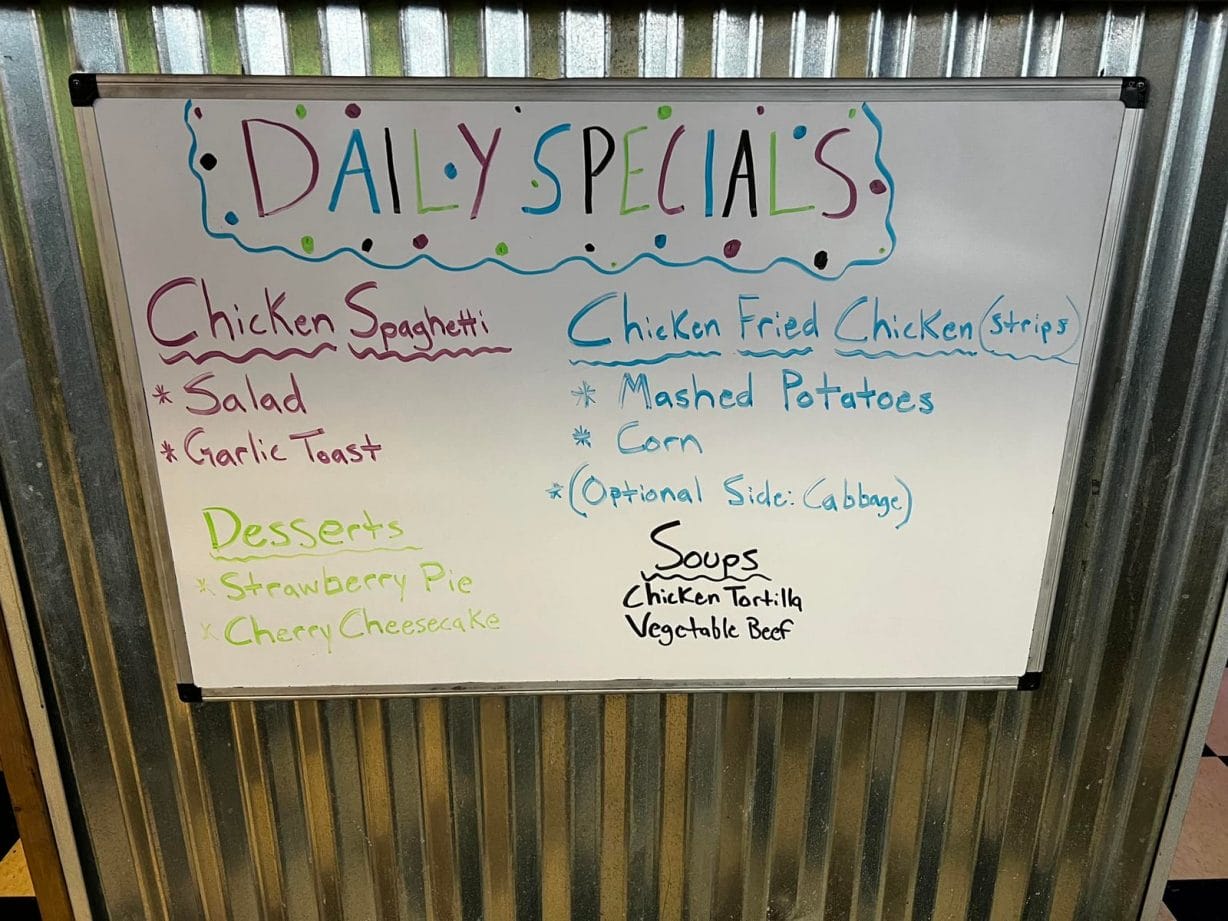 DAILY SPECIALS
Chicken Spaghetti
* Salad
* Garlic Toast
Desserts
* Strawberry Pie
* Cherry Cheesecake
Chicken Fried Chicken (strips)
* Mashed Potatoes
* Corn
* (Optional Side: Cabbage)
Soups
Chicken Tortilla
Vegetable Beef